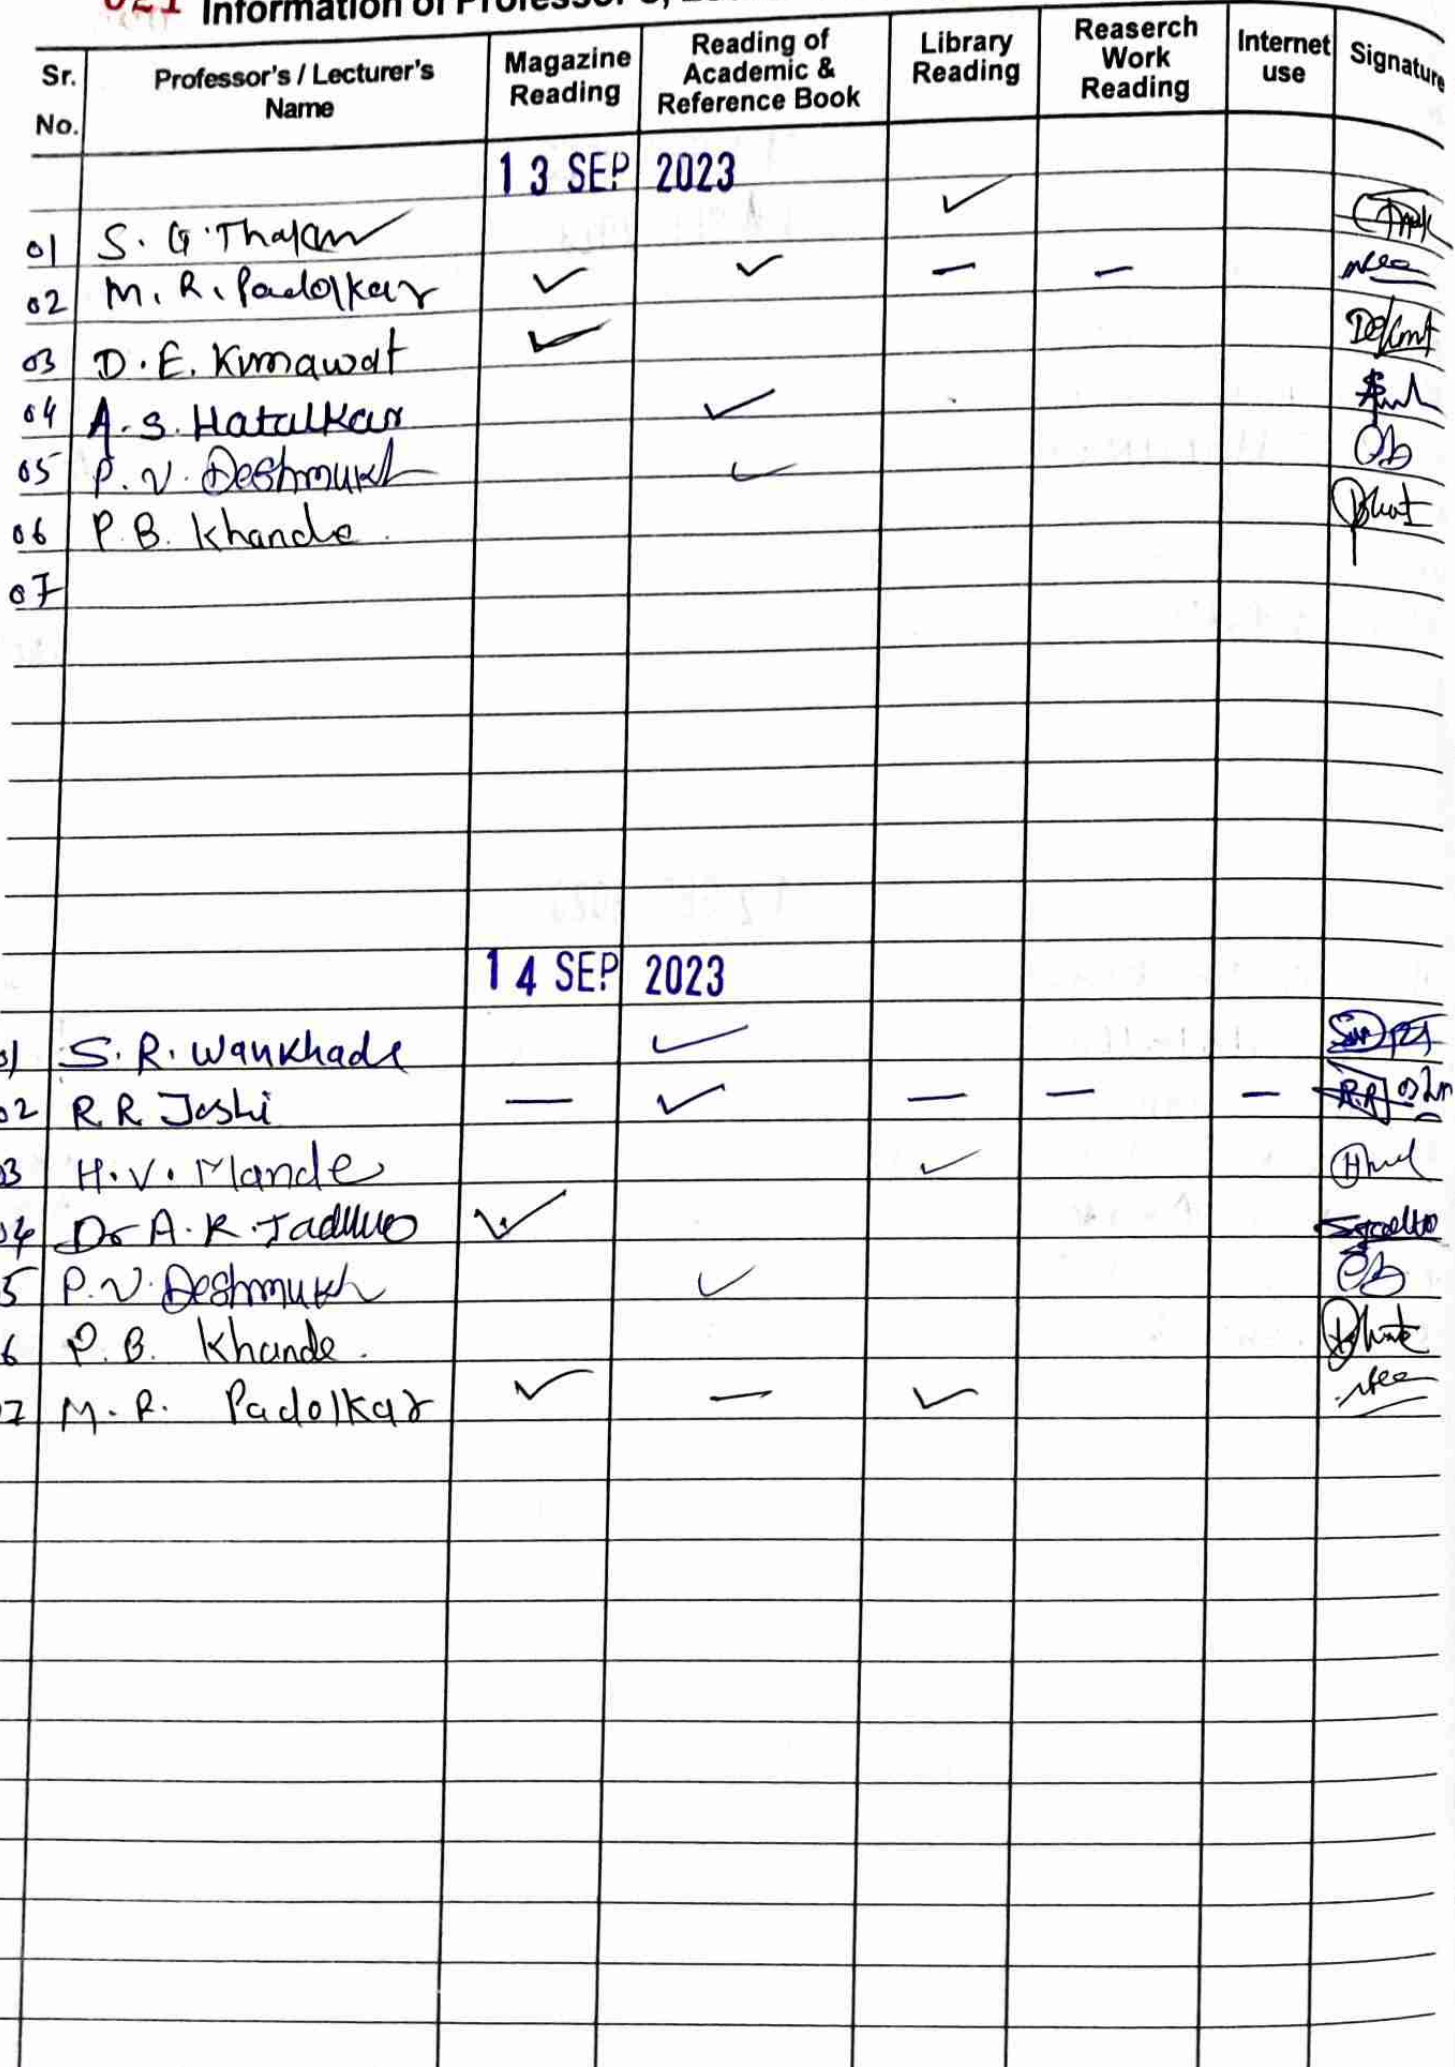 021 Information of Professor's,
Sr. No. Professor's / Lecturer's Name Magazine Reading Reading of Academic & Reference Book Library Reading Reaserch Work Reading Internet use Signature
13 SEP 2023
01 S. G. ✓
02 M. R. Padolkar ✓ ✓ – –
03 D. E. Kumawat ✓
04 A. S. Hatalkar ✓
05 P. V. Deshmukh ✓
06 P. B. Khande.
07
14 SEP 2023
01 S. R. Wankhade ✓
02 R R Joshi — ✓ — — —
03 H. V. Mande ✓
04 Dr A. K. ✓
5 P. V. Deshmukh ✓
6 P. B. Khande.
7 M. R. Padolkar ✓ — ✓